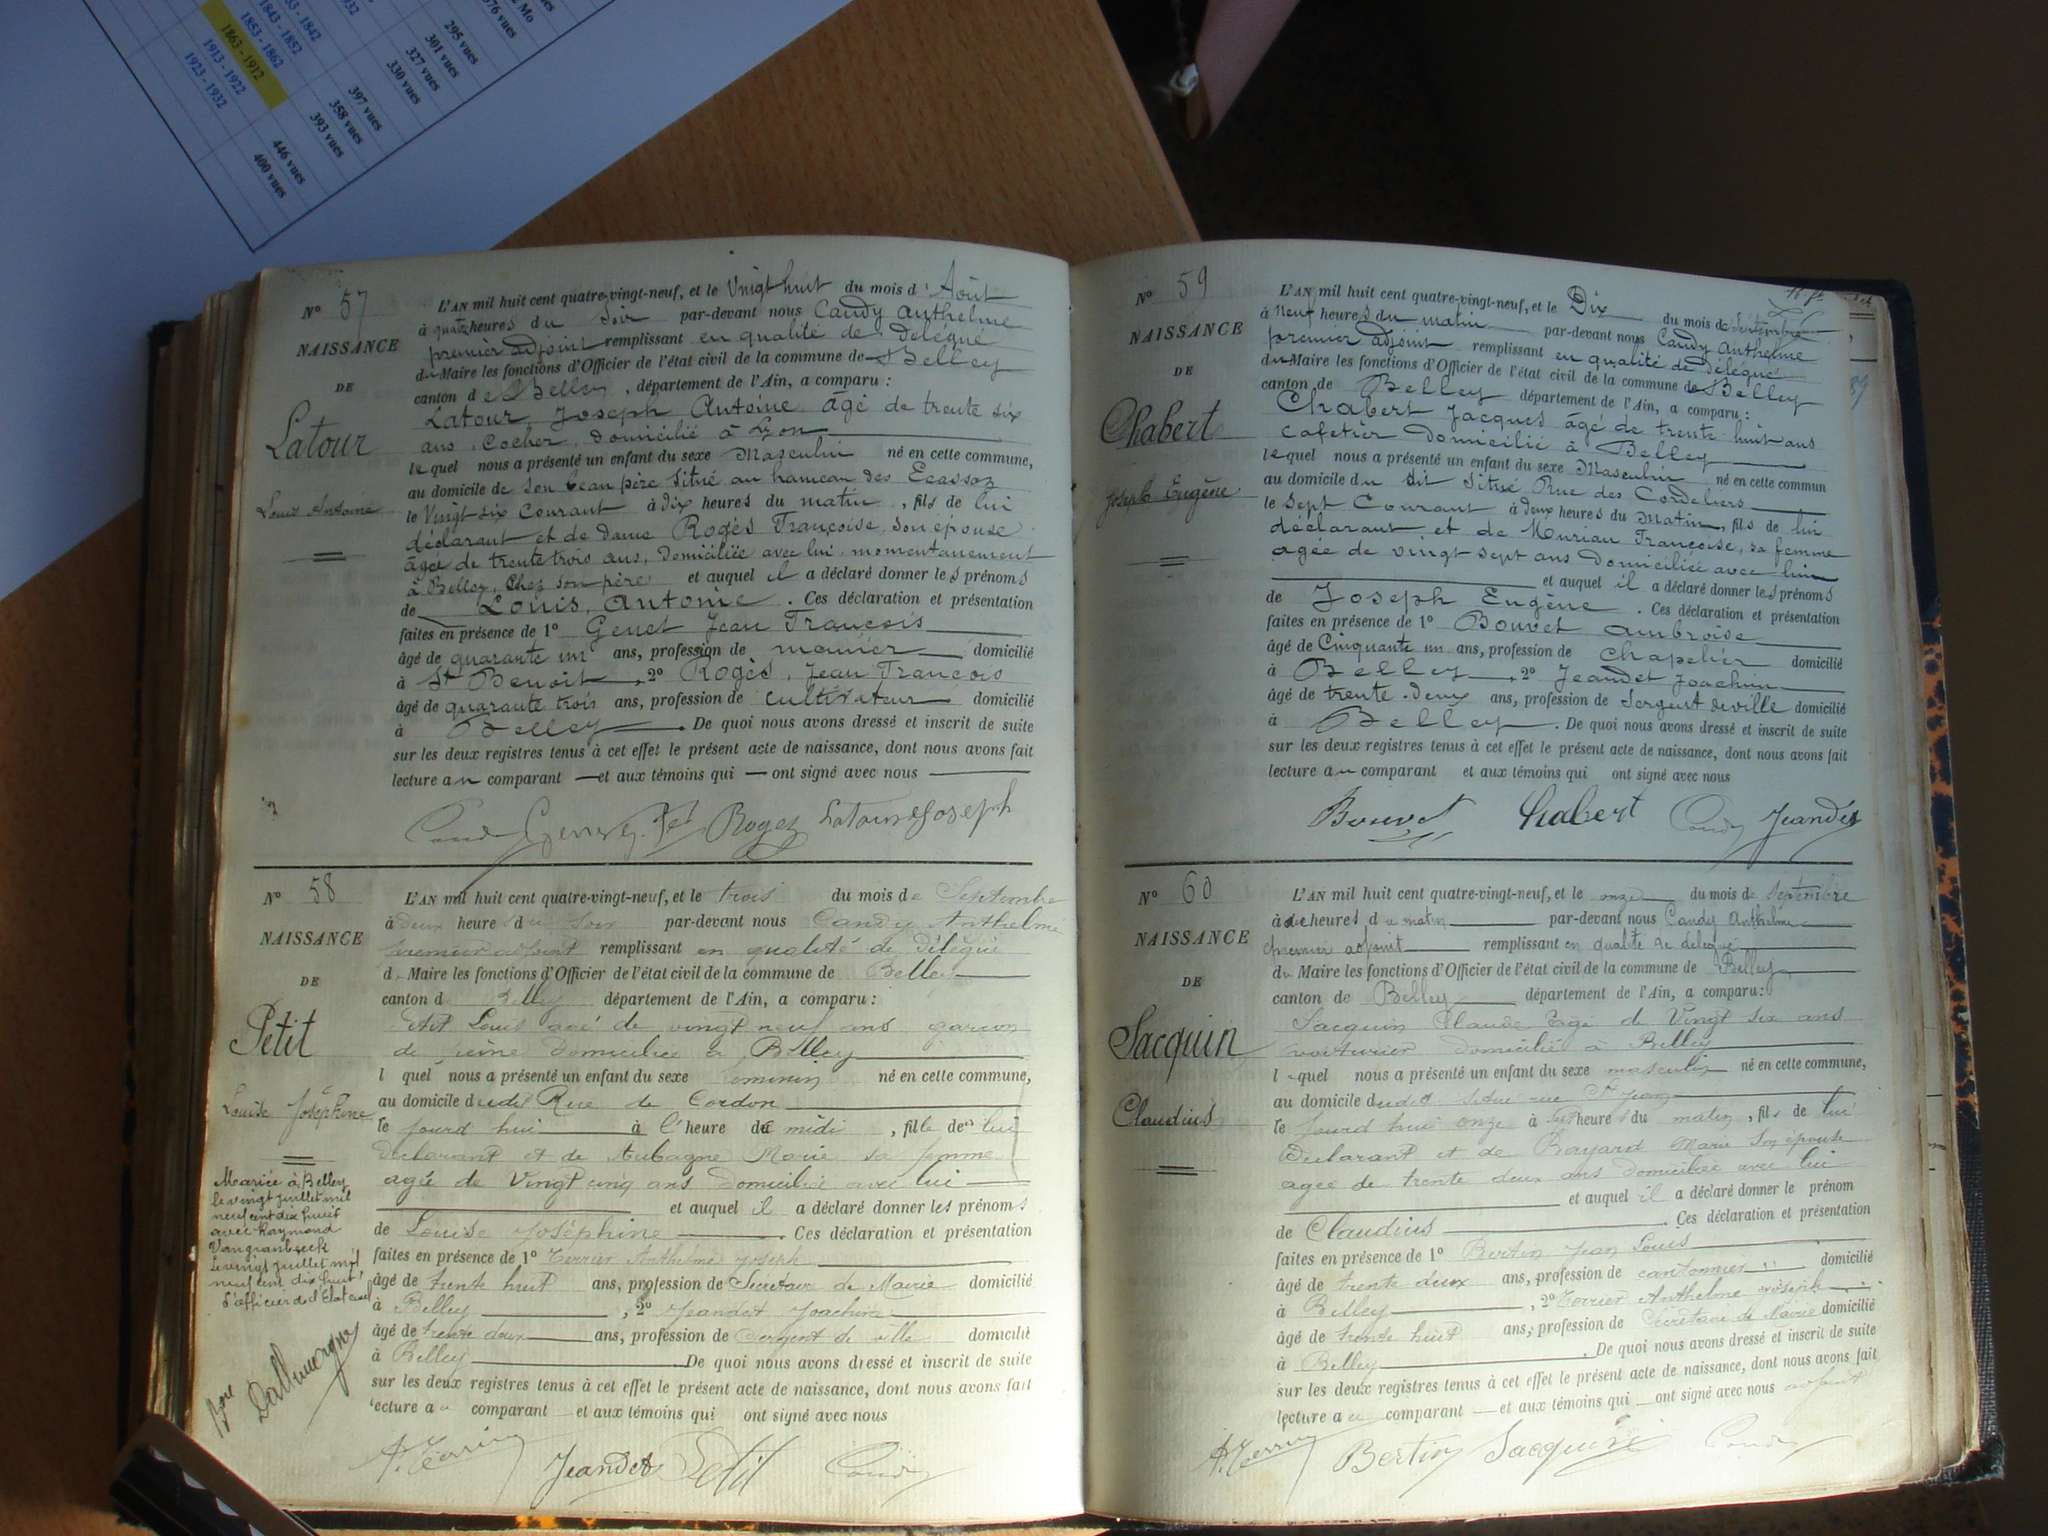 1843 - 1852
1853 - 1862
1863 - 1912
1913 - 1922
1923 - 1932
295 vues
301 vues
327 vues
330 vues
397 vues
358 vues
393 vues
446 vues
400 vues
N° 57
NAISSANCE
DE
Latour
Louis Antoine
L'AN mil huit cent quatre-vingt-neuf, et le Vingt huit du mois d'Août
à quatre heures du soir par-devant nous Candy Anthelme
premier adjoint remplissant en qualité de Délégué
du Maire les fonctions d'Officier de l'état civil de la commune de Belley
canton de Belley, département de l'Ain, a comparu :
Latour Joseph Antoine âgé de trente six
ans, Cocher, domicilié à Lyon
lequel nous a présenté un enfant du sexe Masculin né en cette commune,
au domicile de son beau père situé au hameau des Ecassaz
le Vingt six Courant à dix heures du matin, fils de lui
déclarant et de dame Rogès Françoise, son épouse
âgée de trente trois ans, domiciliée avec lui, momentanement
à Belley, chez son père et auquel il a déclaré donner les prénoms
de Louis, Antoine. Ces déclaration et présentation
faites en présence de 1° Genet Jean François
âgé de quarante un ans, profession de meunier domicilié
à St Benoit, 2° Rogès, Jean François
âgé de quarante trois ans, profession de cultivateur domicilié
à Belley. De quoi nous avons dressé et inscrit de suite
sur les deux registres tenus à cet effet le présent acte de naissance, dont nous avons fait
lecture au comparant et aux témoins qui ont signé avec nous
Candy Roges Latour Joseph
N° 58
NAISSANCE
DE
Petit
Louise Joséphine
Mariée à Belley
le vingt juillet mil
neuf cent dix huit
avec Raymond
Vangranbeeck
le vingt juillet mil
neuf cent dix huit
L'officier de l'Etat civil
Dallemagne
L'AN mil huit cent quatre-vingt-neuf, et le trois du mois de Septembre
à deux heures du soir par-devant nous Candy Anthelme
premier adjoint remplissant en qualité de Délégué
du Maire les fonctions d'Officier de l'état civil de la commune de Belley
canton d Belley département de l'Ain, a comparu :
Petit Louis agé de vingt neuf ans garçon
de peine domicilié à Belley
l quel nous a présenté un enfant du sexe féminin né en cette commune,
au domicile dudit Rue de Cordon
le jourd'hui à l'heure de midi, fille de lui
déclarant et de Aubagne Marie sa femme
agée de Vingt cinq ans domiciliée avec lui
et auquel il a déclaré donner les prénoms
de Louise Joséphine. Ces déclaration et présentation
faites en présence de 1° Terrier Anthelme Joseph
âgé de trente huit ans, profession de Secrétaire de Mairie domicilié
à Belley, 2° Jeandet Joachim
âgé de trente deux ans, profession de Sergent de ville domicilié
à Belley De quoi nous avons dressé et inscrit de suite
sur les deux registres tenus à cet effet le présent acte de naissance, dont nous avons fait
lecture au comparant et aux témoins qui ont signé avec nous
A. Terrier Jeandet Petit Candy
N° 59
NAISSANCE
DE
Chabert
Joseph Eugène
L'AN mil huit cent quatre-vingt-neuf, et le Dix du mois de Septembre
à Neuf heures du matin par-devant nous Candy Anthelme
premier adjoint remplissant en qualité de Délégué
du Maire les fonctions d'Officier de l'état civil de la commune de Belley
canton de Belley département de l'Ain, a comparu :
Chabert Jacques âgé de trente huit ans
cafetier domicilié à Belley
lequel nous a présenté un enfant du sexe Masculin né en cette commun
au domicile du dit situé Rue des Cordeliers
le Sept Courant à deux heures du Matin, fils de lui
déclarant et de Murian Françoise, sa femme
agée de vingt sept ans domiciliée avec lui
et auquel il a déclaré donner les prénoms
de Joseph Eugène. Ces déclaration et présentation
faites en présence de 1° Bouvet ambroise
âgé de Cinquante un ans, profession de chapelier domicilié
à Belley, 2° Jeandet Joachim
âgé de trente deux ans, profession de Sergent de ville domicilié
à Belley. De quoi nous avons dressé et inscrit de suite
sur les deux registres tenus à cet effet le présent acte de naissance, dont nous avons fait
lecture au comparant et aux témoins qui ont signé avec nous
Bouvet Chabert Candy Jeandet
N° 60
NAISSANCE
DE
Jacquin
Claudius
L'AN mil huit cent quatre-vingt-neuf, et le onze du mois de Septembre
à dix heures du matin par-devant nous Candy Anthelme
premier adjoint remplissant en qualité de délégué
du Maire les fonctions d'Officier de l'état civil de la commune de Belley
canton de Belley département de l'Ain, a comparu :
Jacquin Claude âgé de Vingt six ans
voiturier domicilié à Belley
lequel nous a présenté un enfant du sexe masculin né en cette commune,
au domicile dudit situé rue St Jean
le jourd'hui onze à heure du matin, fils de lui
Déclarant et de Bayard Marie son épouse
agée de trente deux ans domiciliée avec lui
et auquel il a déclaré donner le prénom
de Claudius. Ces déclaration et présentation
faites en présence de 1° Bertin Jean Louis
âgé de trente deux ans, profession de cantonnier domicilié
à Belley, 2° Terrier Anthelme Joseph
âgé de trente huit ans, profession de Secrétaire de Mairie domicilié
à Belley. De quoi nous avons dressé et inscrit de suite
sur les deux registres tenus à cet effet le présent acte de naissance, dont nous avons fait
lecture au comparant et aux témoins qui ont signé avec nous adjoint
A. Terrier Bertin Jacquin Candy